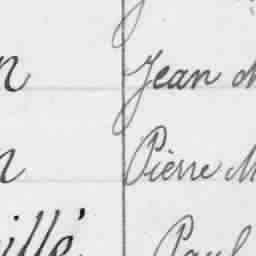 n Jean M
n Pierre M
illé Paul